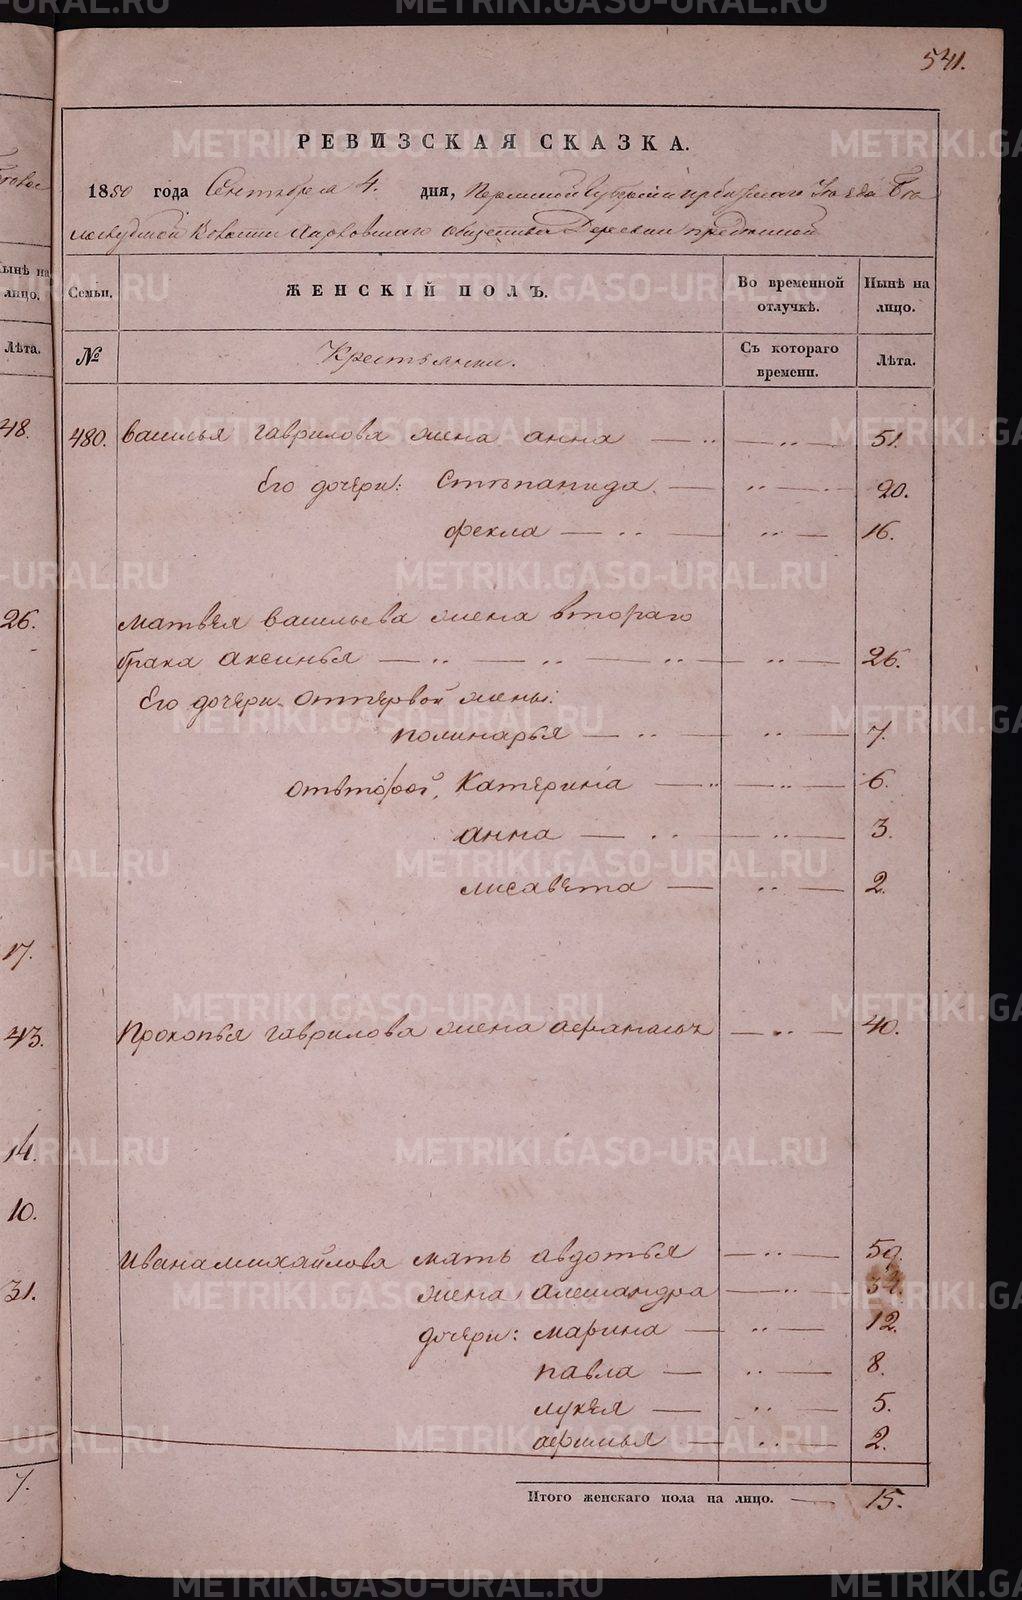 541.
РЕВИЗСКАЯ СКАЗКА.
1850 года Сентября 4. дня, Пермской Губернии Ирбитскаго Уезда
Волости общества Деревни
Семьи.
ЖЕНСКІЙ ПОЛЪ.
Во временной отлучкѣ.
Нынѣ на лицо.
№
Крестьянки.
Съ котораго времени.
Лѣта.
480. василья гаврилова жена анна — „ — „ — 51.
Его дочери: Степанида. — „ — 20.
фекла — „ — „ — 16.
матвѣя васильева жена втораго
брака аксинья — „ — „ — „ — „ — 26.
Его дочери отпервой жены:
полинарья — „ — „ — 7.
отвторой, Катерина — „ — „ — 6.
анна — „ — „ — 3.
лисавета — „ — 2.
Прокопья гаврилова жена — „ — 40.
Ивана михайлова мать авдотья — „ — 59.
жена александра — „ — 34.
дочери: марина — „ — 12.
павла — „ — 8.
лукея — „ — 5.
афимья — „ — 2.
Итого женскаго пола на лицо. — 15.
ынѣ на
лицо.
Лѣта.
48.
26.
17.
43.
14.
10.
31.
7.
METRIKI.GASO-URAL.RU